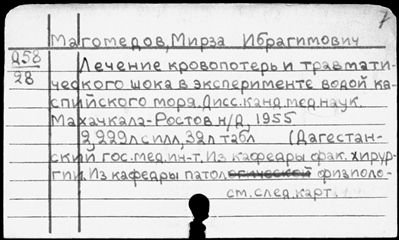 Магомедов, Мирза Ибрагимович
Д58
28
Лечение кровопотерь и травмати-
ческого шока в эксперименте водой ка-
спийского моря. Дисс. канд. мед. наук.
Махачкала-Ростов н/Д, 1955
2, 229 л. с илл, 32 л табл (Дагестан-
ский гос. мед. ин-т. Из кафедры фак. хирур-
гии. Из кафедры патологической физиоло-
см. след. карт.